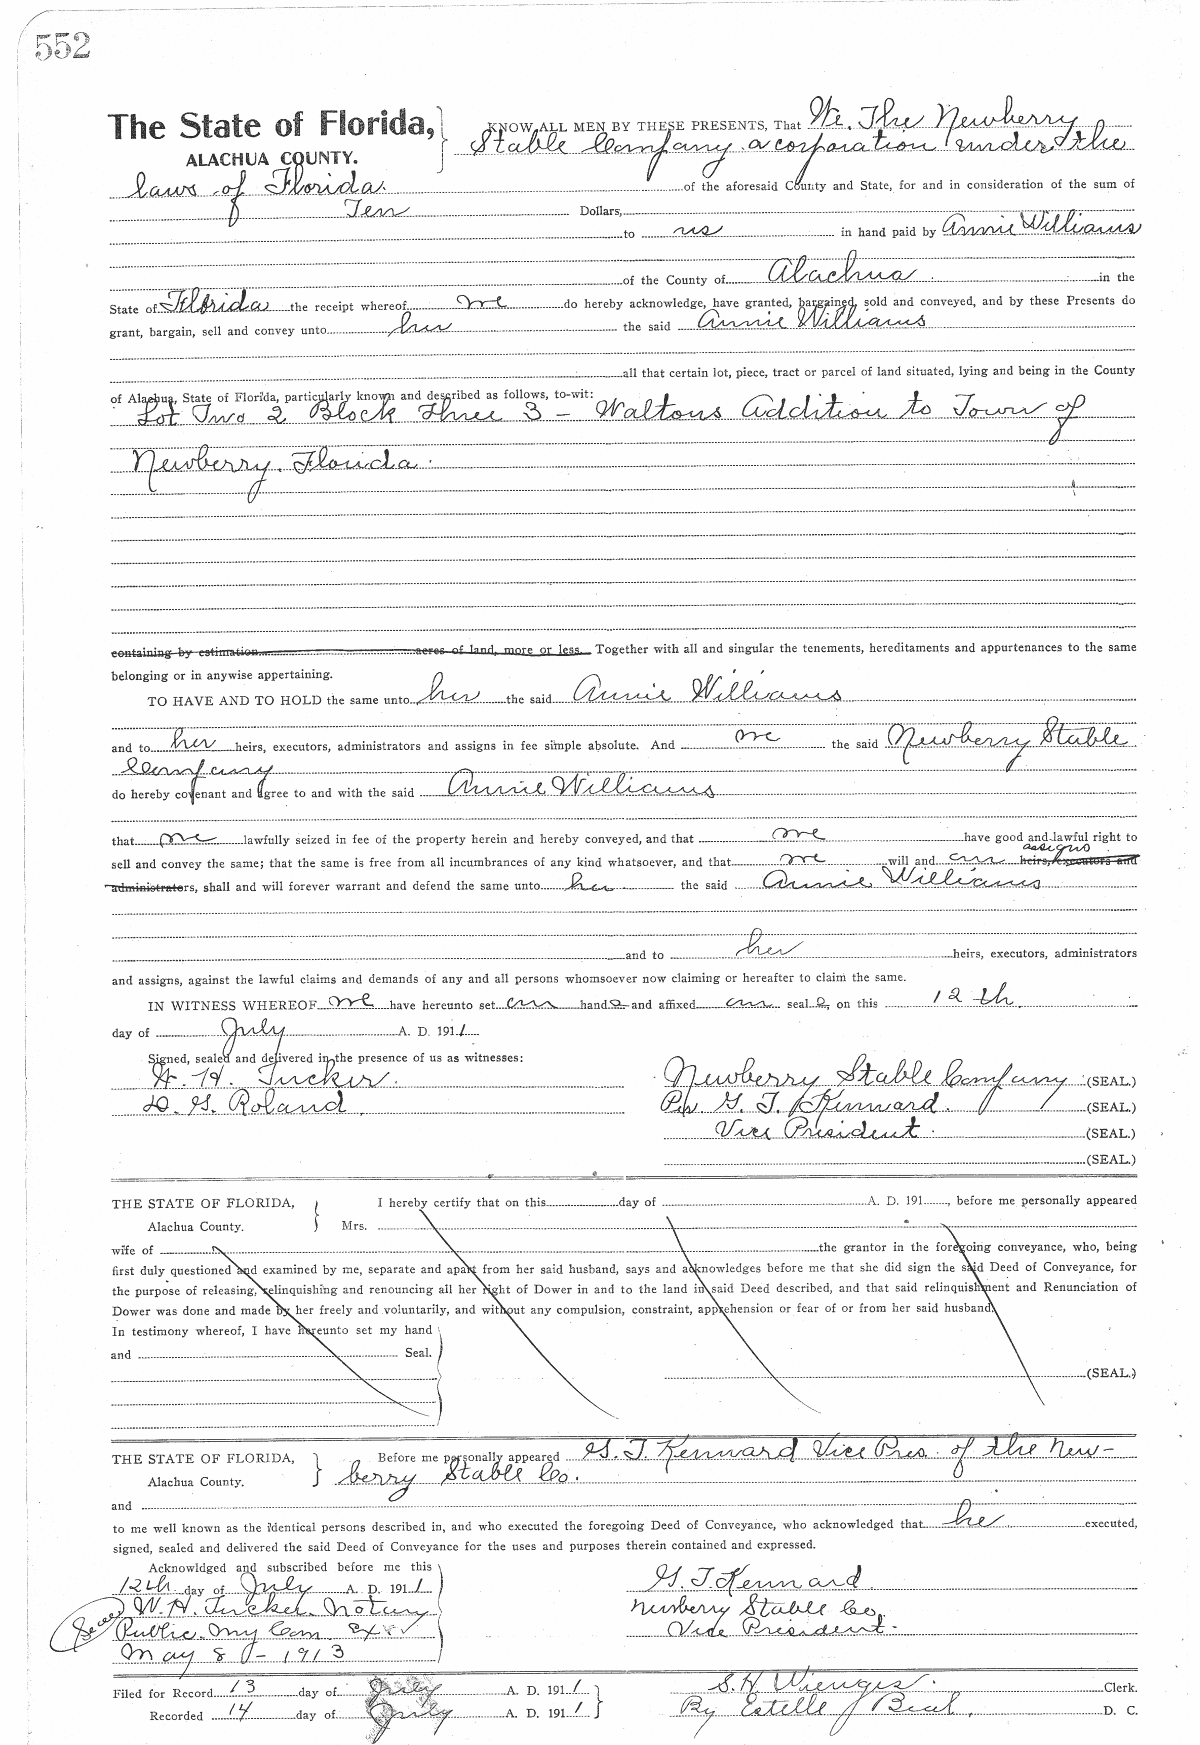 552
The State of Florida, KNOW ALL MEN BY THESE PRESENTS, That We, The Newberry
ALACHUA COUNTY. Stable Company a corporation under the
laws of Florida. of the aforesaid County and State, for and in consideration of the sum of
Ten Dollars,
to us in hand paid by Annie Williams
of the County of Alachua in the
State of Florida the receipt whereof we do hereby acknowledge, have granted, bargained, sold and conveyed, and by these Presents do
grant, bargain, sell and convey unto her the said Annie Williams
all that certain lot, piece, tract or parcel of land situated, lying and being in the County
of Alachua, State of Florida, particularly known and described as follows, to-wit:
Lot Two 2 Block Three 3 - Waltons Addition to Town of
Newberry, Florida.
containing by estimation acres of land, more or less. Together with all and singular the tenements, hereditaments and appurtenances to the same
belonging or in anywise appertaining.
TO HAVE AND TO HOLD the same unto her the said Annie Williams
and to her heirs, executors, administrators and assigns in fee simple absolute. And we the said Newberry Stable
Company
do hereby covenant and agree to and with the said Annie Williams
that we lawfully seized in fee of the property herein and hereby conveyed, and that we have good and lawful right to
assigns
sell and convey the same; that the same is free from all incumbrances of any kind whatsoever, and that we will and our heirs, executors and
administrators, shall and will forever warrant and defend the same unto her the said Annie Williams
and to her heirs, executors, administrators
and assigns, against the lawful claims and demands of any and all persons whomsoever now claiming or hereafter to claim the same.
IN WITNESS WHEREOF we have hereunto set our hands and affixed our seals, on this 12th
day of July A. D. 1911
Signed, sealed and delivered in the presence of us as witnesses:
W. H. Tucker. Newberry Stable Company (SEAL.)
D. G. Roland Per G. T. Kennard. (SEAL.)
Vice President. (SEAL.)
(SEAL.)
THE STATE OF FLORIDA, I hereby certify that on this day of A. D. 191 , before me personally appeared
Alachua County. Mrs.
wife of the grantor in the foregoing conveyance, who, being
first duly questioned and examined by me, separate and apart from her said husband, says and acknowledges before me that she did sign the said Deed of Conveyance, for
the purpose of releasing, relinquishing and renouncing all her right of Dower in and to the land in said Deed described, and that said relinquishment and Renunciation of
Dower was done and made by her freely and voluntarily, and without any compulsion, constraint, apprehension or fear of or from her said husband.
In testimony whereof, I have hereunto set my hand
and Seal.
(SEAL.)
THE STATE OF FLORIDA, Before me personally appeared G. T. Kennard Vice Pres. of the New-
Alachua County. berry Stable Co.
and
to me well known as the identical persons described in, and who executed the foregoing Deed of Conveyance, who acknowledged that he executed,
signed, sealed and delivered the said Deed of Conveyance for the uses and purposes therein contained and expressed.
Acknowldged and subscribed before me this
12th day of July A. D. 1911 G. T. Kennard
W. H. Tucker Notary Newberry Stable Co.
Public. My Com Vice President.
May 8 - 1913
Filed for Record 13 day of July A. D. 1911 S. H. Wienges. Clerk.
Recorded 14 day of July A. D. 1911 By Estelle Beal, D. C.